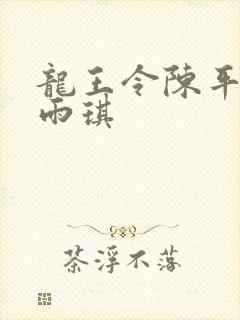 龍王令陳平
雨琪
茶浮不落